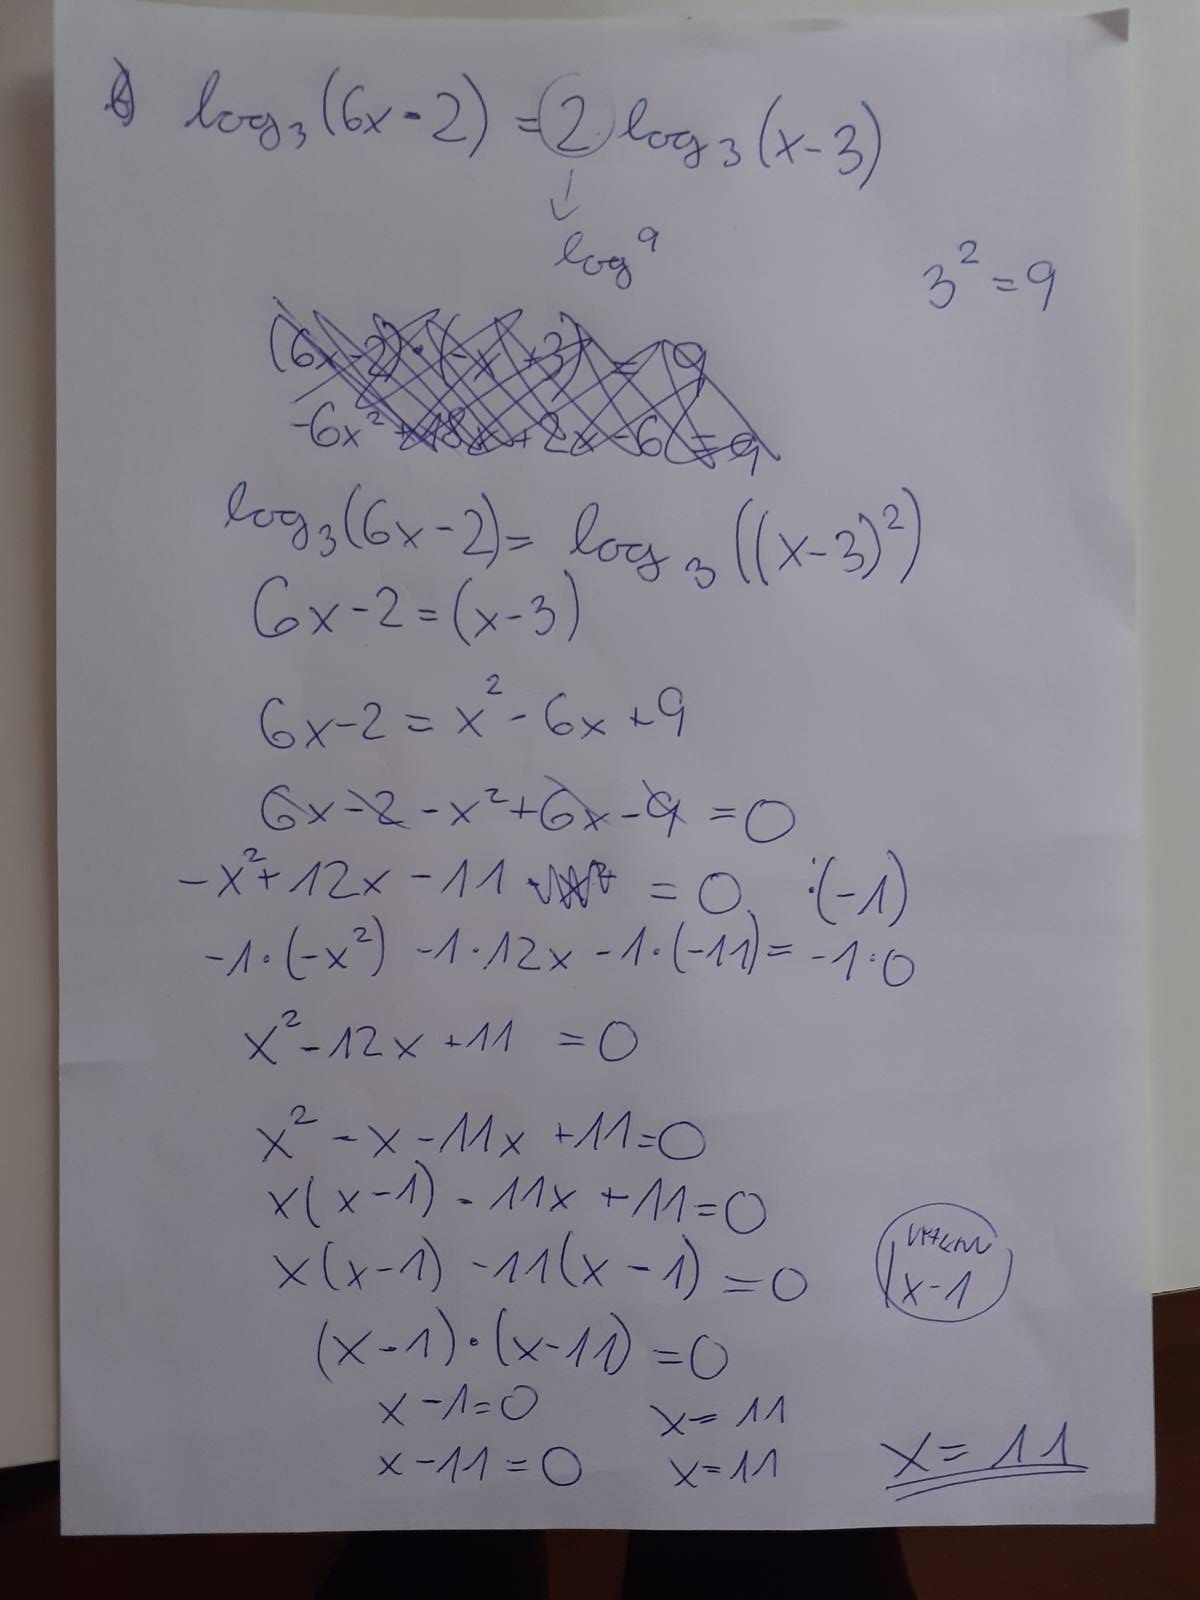 log₃(6x-2) = 2 log₃(x-3)
↓
log⁹
3² = 9
(6x-2)·(-x+3) = 9
-6x²+18x+2x-6 = 9
log₃(6x-2) = log₃((x-3)²)
6x-2 = (x-3)
6x-2 = x²-6x+9
6x-2-x²+6x-9 = 0
-x²+12x-11 = 0 ·(-1)
-1·(-x²) -1·12x -1·(-11) = -1·0
x²-12x+11 = 0
x²-x-11x+11=0
x(x-1)-11x+11=0
x(x-1)-11(x-1)=0
x-1
(x-1)·(x-11)=0
x-1=0 x=11
x-11=0 x=11
x=11